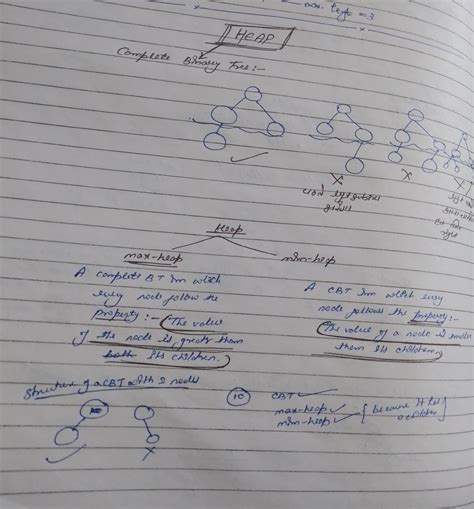 HEAP
Complete Binary Tree :-
Heap
max-heap
min-heap
A complete BT in which
every node follow the
property :- (The value
of the node is greater than
both its children.)
A CBT in which every
node follows the property :-
(The value of a node is smaller
than its children.)
Structure of a CBT with 2 nodes
10
CBT
max-heap
min-heap
because it has
0 children